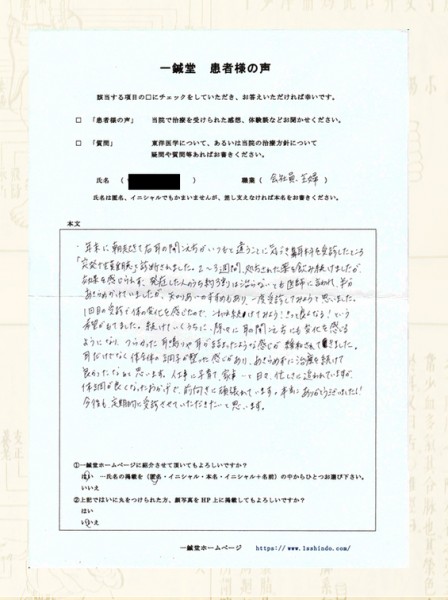 一鍼堂 患者様の声
該当する項目の□にチェックをしていただき、お答えいただければ幸いです。
□ 「患者様の声」 当院で治療を受けられた感想、体験談などお聞かせください。
□ 「質問」 東洋医学について、あるいは当院の治療方針について
疑問や質問等あればお書きください。
氏名 ( 職業 ( 会社員、主婦 )
氏名は匿名、イニシャルでもかまいませんが、差し支えなければ本名をお書きください。
本文
・年末に朝起きて右耳の聞こえ方がいつもと違うことに気づき耳鼻科を受診したところ
「突発性難聴」と診断されました。2〜3週間、処方された薬を飲み続けましたが、
効果を感じられず、発症した人のうち約3割は治らないとも医師に言われ、半分
あきらめかけていましたが、知りあいの
1回目の受診で体の変化を感じたので、これは続けてみよう!きっと良くなる!という
希望がもてました。続けていくうちに、除々に耳の聞こえ方にも変化を感じる
ようになり、つらかった耳鳴りや耳が詰まったような感じが緩和されて来ました。
耳だけでなく体全体の調子が整った感じがあり、あきらめずに治療を続けて
良かったなあと思います。仕事に子育て、家事…と日々、忙しさに追われていますが、
体調が良くなったおかげで、前向きに頑張れています。本当にありがとうございました!
今後も、定期的に受診させていただきたいと思います。
①一鍼堂ホームページに紹介させて頂いてもよろしいですか?
はい →氏名の掲載を(匿名・イニシャル・本名・イニシャル+名前)の中からひとつお選び下さい。
いいえ
②上記ではいに丸をつけられた方、顔写真をHP上に掲載してもよろしいですか?
はい
いいえ
一鍼堂ホームページ https://www.1sshindo.com/